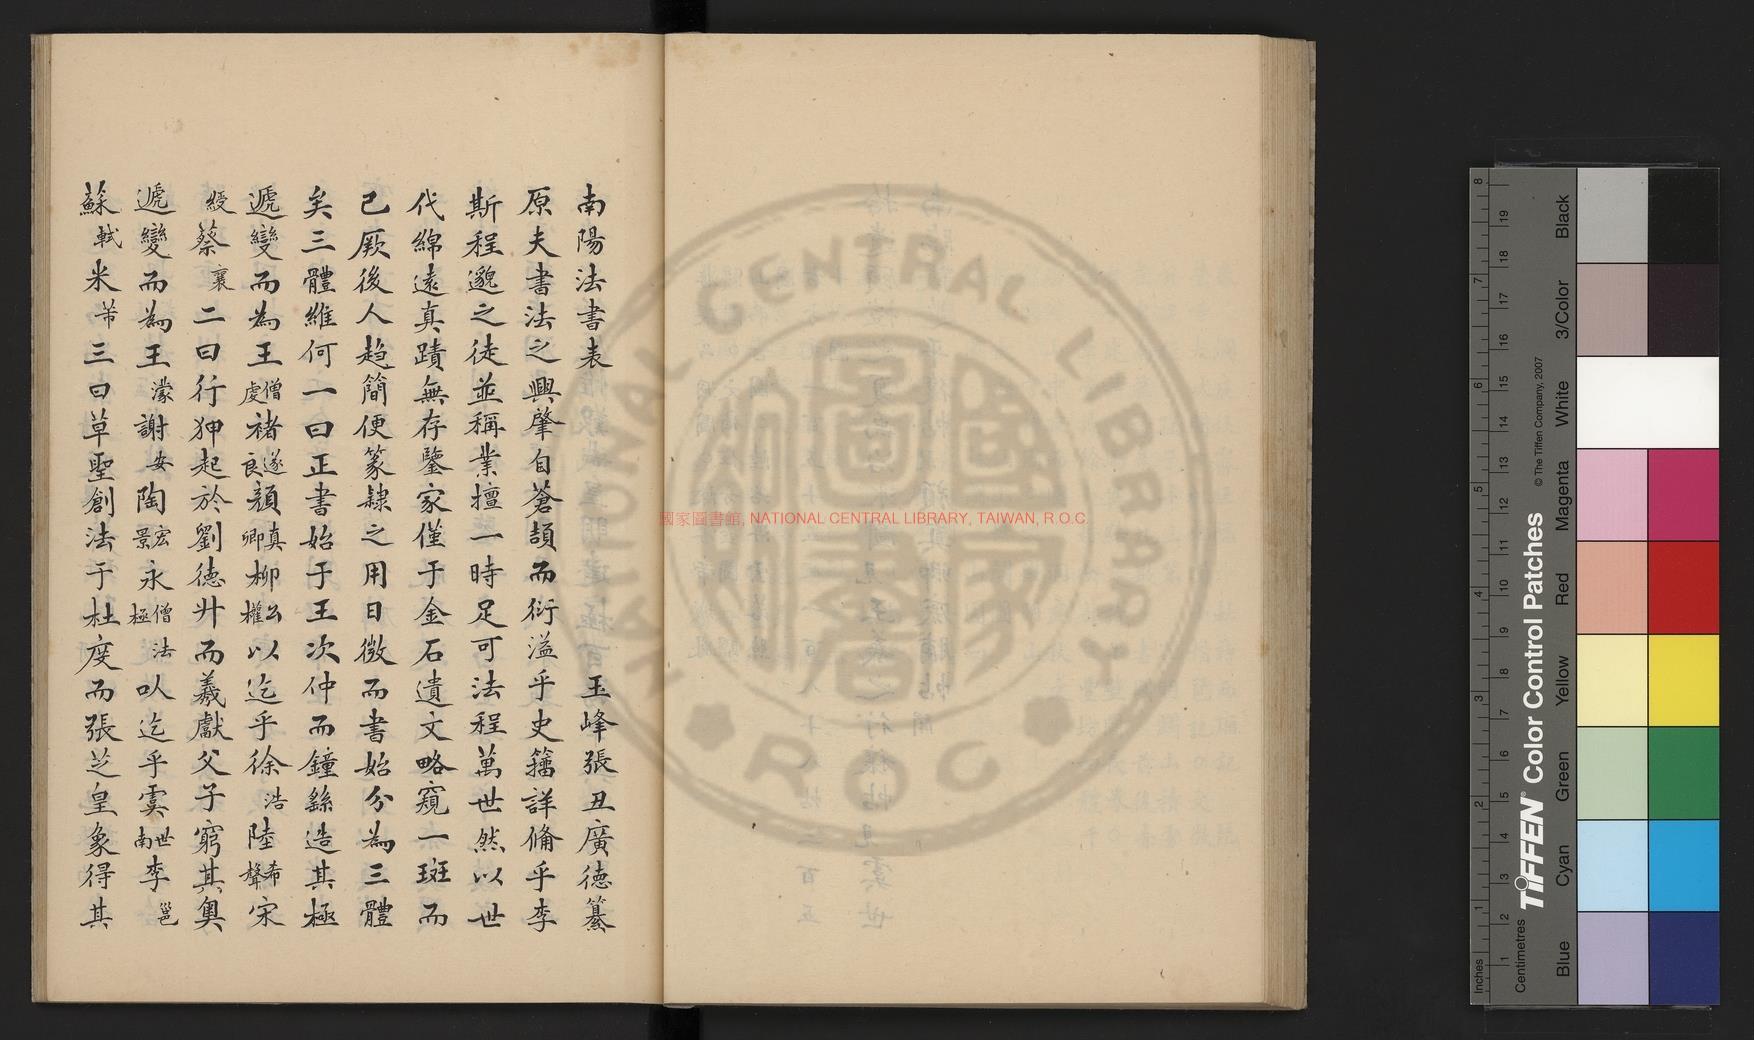 南陽法書表
玉峰張丑廣德纂
原夫書法之興肇自蒼頡而衍溢乎史籀詳備乎李
斯程邈之徒並稱業擅一時足可法程萬世然以世
代綿遠真蹟無存鑒家僅于金石遺文略窺一斑而
已厥後人趨簡便篆隸之用日微而書始分為三體
矣三體維何一曰正書始于王次仲而鐘繇造其極
遞變而為王僧虔褚遂良顏真卿柳公權以迄乎徐浩陸希聲宋
綬蔡襄二曰行狎起於劉德升而羲獻父子窮其奧
遞變而為王濛謝安陶宏景永僧法極以迄乎虞世南李邕
蘇軾米芾三曰草聖創法于杜度而張芝皇象得其
國家圖書館, NATIONAL CENTRAL LIBRARY, TAIWAN, R.O.C.
NATIONAL CENTRAL LIBRARY
R O C
TIFFEN® Color Control Patches
© The Tiffen Company, 2007
Inches
Centimetres
Blue
Cyan
Green
Yellow
Red
Magenta
White
3/Color
Black